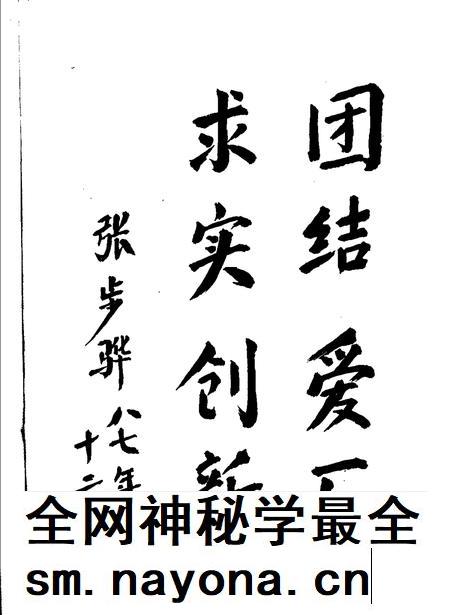 团结爱厂
求实创新
张步骅
八七年
十二
全网神秘学最全
sm.nayona.cn